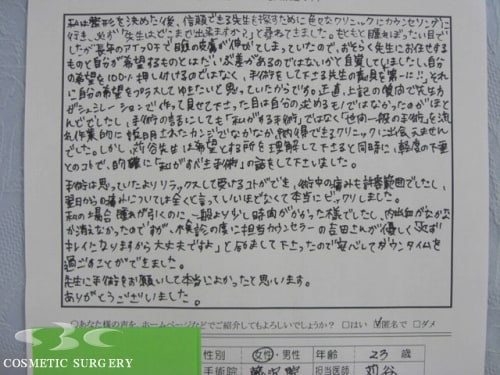 私は整形を決めた後、信頼できる先生を探すために色々なクリニックにカウンセリングに
行き、必ず「先生はどこまで出来ますか?」と尋ねてきました。もともと腫れぼったい目で
したが長年のアイプチで瞼の皮膚が伸びてしまっていたので、おそらく先生にお任せする
ものと自分が希望するものとはだいぶ差があるのではないかと自覚していましたし、自分
の希望を100%押し付けるのではなく、手術をして下さる先生の意見を第一に!!、それ
に自分の希望をプラスしてゆきたいと思っていたからですが。正直、上記の質問で先生方
がシュミレーションで作って見せて下さった目は自分の求めるものではなかったのがほと
んどでしたし、手術の話にしても「私がする手術」ではなく「世間一般の手術」を流
れ作業的に説明されたカンジでなかなか納得できるクリニックに出会えません
でした。しかし、苅谷先生は希望とする所を理解して下さると同時に、軽度の下垂
とのコトで、的確に「私がすべき手術」の話をして下さいました。
手術は思っていたよりリラックスして受けるコトができ、術中の痛みも許容範囲でしたし、
翌日からの痛みについては全くと言っていいほどなくて本当にビックリしました。
私の場合腫れが引くのに一般より少し時間がかかった様でしたし、内出血がなかなか
消えなかったのですが、検診の度に担当カウンセラーの吉田さんが優しく「必ず
キレイになりますから大丈夫ですよ」と励まして下さったので安心してダウンタイムを
過ごすことができました。
先生に手術をお願いして本当によかったと思います。
ありがとうございました。
○あなた様の声を、ホームページなどでご紹介してもよろしいでしょうか? □はい ☑匿名で □ダメ
性別 女性・男性 年齢 23歳
手術院 担当医師 苅谷
SBC
COSMETIC SURGERY